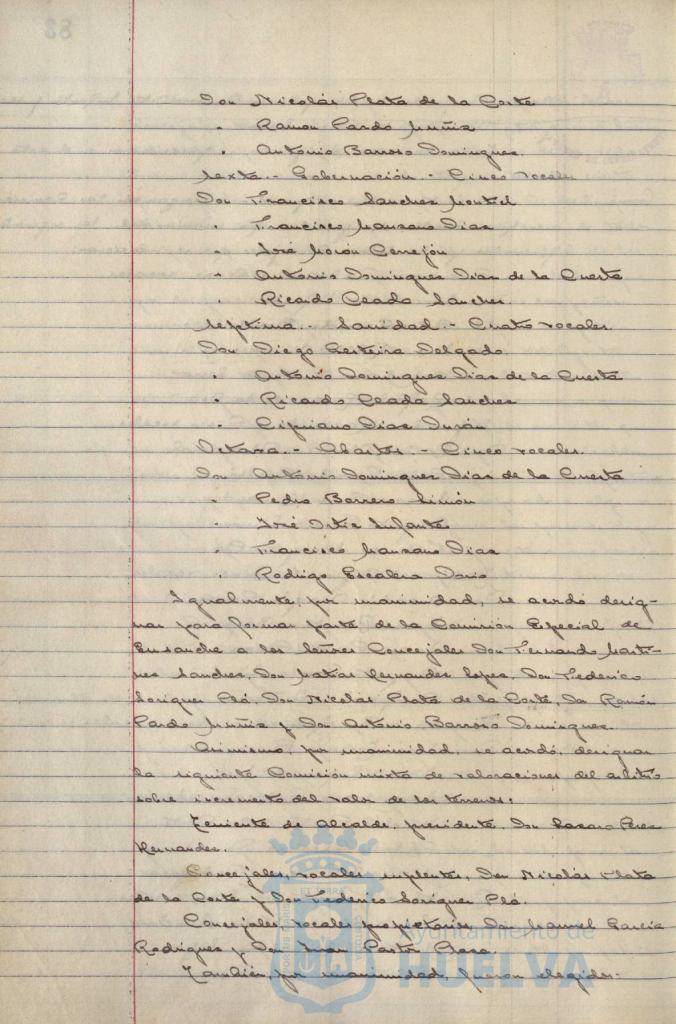 Don Nicolás Plata de la Corte
" Ramon Pardo Muñiz
" Antonio Barroso Dominguez.
Sexta.- Gobernación.- Cinco vocales
Don Francisco Sanchez Montiel
" Francisco Manzano Diaz
" José Morón Cerrejón
" Antonio Dominguez Diaz de la Cuesta
" Ricardo Ceada Sanchez.
Septima.- Sanidad.- Cuatro vocales.
Don Diego Delgado.
" Antonio Dominguez Diaz de la Cuesta
" Ricardo Ceada Sanchez
" Cipriano Diaz Durán
Octava.- Abastos.- Cinco vocales.
Don Antonio Dominguez Diaz de la Cuesta
" Pedro Borrero Simón
" José Ortiz Infantes
" Francisco Manzano Diaz
" Rodrigo Escalera
Igualmente, por unanimidad, se acordó desig-
nar para formar parte de la Comisión Especial de
Ensanche a los Señores Concejales Don Fernando Marti-
nez Sanchez, Don Matias Hernandez Lopez, Don Federico
Soriguer Plá, Don Nicolás Plata de la Corte, Don Ramón
Pardo Muñiz y Don Antonio Barroso Dominguez.
Asimismo, por unanimidad, se acordó, designar
la siguiente Comisión mixta de valoraciones del arbitrio
sobre incremento del valor de los terrenos:
Teniente de Alcalde, presidente, Don Perez
Hernandez.
Concejales, vocales suplentes, Don Nicolás Plata
de la Corte y Don Federico Soriguer Plá.
Concejales, vocales propietarios, Don Manuel García
Rodriguez y Don Juan Pastor
También, por unanimidad, fueron elegidos:
Ayuntamiento de
HUELVA